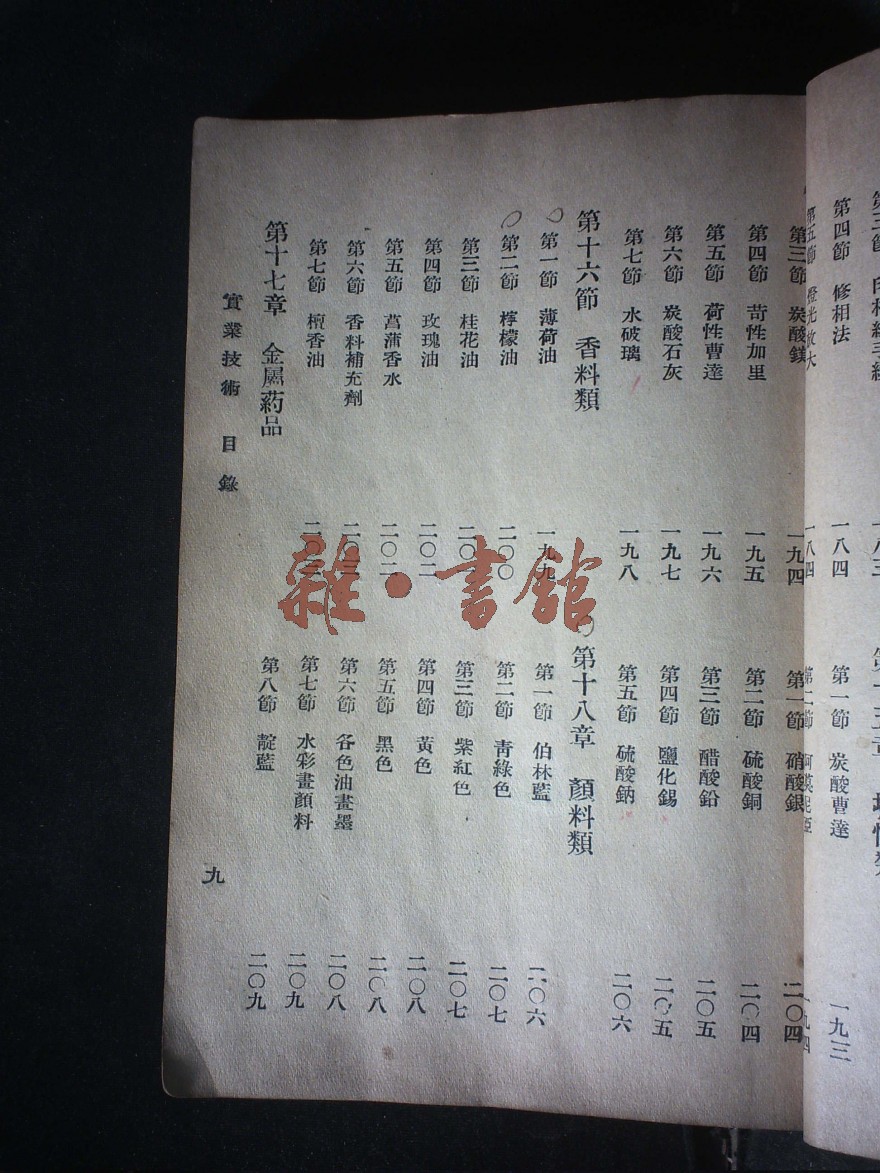 第四節 修相法 一八四
第五節 燈光放大 一八四
第一節 炭酸曹達 一九三
第二節 阿莫尼亞 一九四
第三節 炭酸鎂 一九四
第四節 苛性加里 一九五
第五節 荷性曹達 一九六
第六節 炭酸石灰 一九七
第七節 水破璃 一九八
第十六節 香料類
第一節 薄荷油 一九九
第二節 檸檬油 二〇〇
第三節 桂花油
第四節 玫瑰油 二〇二
第五節 菖蒲香水 二〇二
第六節 香料補充劑 二〇三
第七節 檀香油
第十七章 金屬葯品
第一節 硝酸銀 二〇四
第二節 硫酸銅 二〇四
第三節 醋酸鉛 二〇五
第四節 鹽化錫 二〇五
第五節 硫酸鈉 二〇六
第十八章 顏料類
第一節 伯林藍 二〇六
第二節 青綠色 二〇七
第三節 紫紅色 二〇七
第四節 黃色 二〇八
第五節 黑色 二〇八
第六節 各色油畫墨 二〇八
第七節 水彩畫顏料 二〇九
第八節 靛藍 二〇九
實業技術 目錄
九
雜·書館